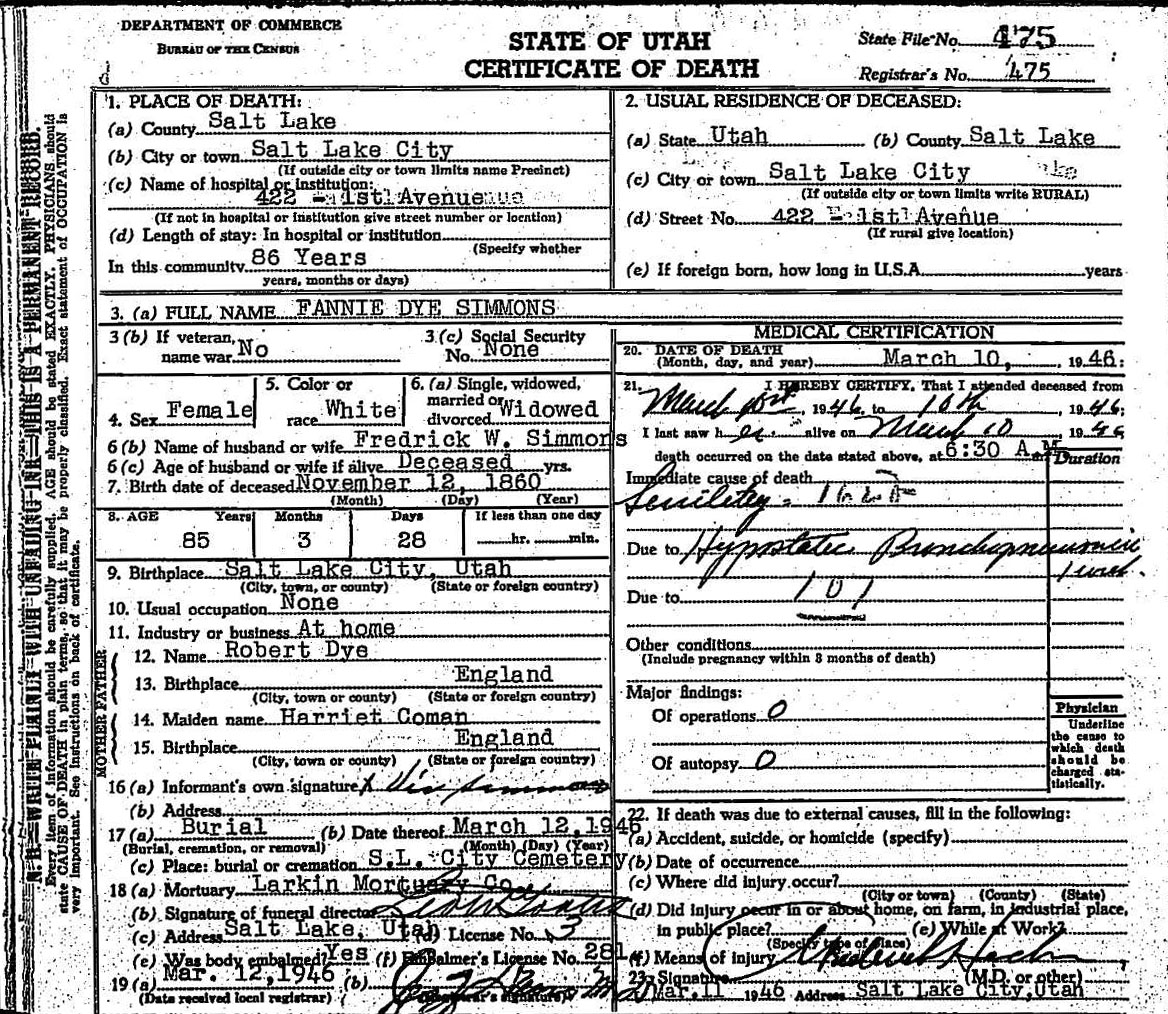 DEPARTMENT OF COMMERCE
BUREAU OF THE CENSUS
STATE OF UTAH
CERTIFICATE OF DEATH
State File No. 475
Registrar's No. 475
N.B.—WRITE PLAINLY WITH UNFADING INK—THIS IS A PERMANENT RECORD.
Every item of information should be carefully supplied. AGE should be stated EXACTLY. PHYSICIANS should
state CAUSE OF DEATH in plain terms, so that it may be properly classified. Exact statement of OCCUPATION is
very important. See instructions on back of certificate.
1. PLACE OF DEATH:
(a) County Salt Lake
(b) City or town Salt Lake City
(If outside city or town limits name Precinct)
(c) Name of hospital or institution:
422 - 1st Avenue
(If not in hospital or institution give street number or location)
(d) Length of stay: In hospital or institution
(Specify whether
In this community 86 Years
years, months or days)
2. USUAL RESIDENCE OF DECEASED:
(a) State Utah (b) County Salt Lake
(c) City or town Salt Lake City
(If outside city or town limits write RURAL)
(d) Street No. 422 - 1st Avenue
(If rural give location)
(e) If foreign born, how long in U.S.A. years
3. (a) FULL NAME FANNIE DYE SIMMONS
3 (b) If veteran, name war No
3 (c) Social Security No. None
4. Sex Female
5. Color or race White
6. (a) Single, widowed, married or divorced Widowed
6 (b) Name of husband or wife Fredrick W. Simmons
6 (c) Age of husband or wife if alive Deceased yrs.
7. Birth date of deceased November 12, 1860
(Month) (Day) (Year)
8. AGE Years Months Days If less than one day
85 3 28 hr. min.
9. Birthplace Salt Lake City, Utah
(City, town, or county) (State or foreign country)
10. Usual occupation None
11. Industry or business At home
FATHER
12. Name Robert Dye
13. Birthplace England
(City, town or county) (State or foreign country)
MOTHER
14. Maiden name Harriet Coman
15. Birthplace England
(City, town or county) (State or foreign country)
16 (a) Informant's own signature X Simmons
(b) Address
17 (a) Burial (b) Date thereof March 12, 1946
(Burial, cremation, or removal) (Month) (Day) (Year)
(c) Place: burial or cremation S.L. City Cemetery
18 (a) Mortuary Larkin Mortuary Co.
(b) Signature of funeral director
(c) Address Salt Lake, Utah (d) License No. 3
(e) Was body embalmed? Yes (f) Embalmer's License No. 281
19 (a) Mar. 12, 1946 (b)
(Date received local registrar) (Registrar's signature)
MEDICAL CERTIFICATION
20. DATE OF DEATH
(Month, day, and year) March 10, 1946:
21. I HEREBY CERTIFY, That I attended deceased from
March 1st, 1946, to 10th, 1946;
I last saw her alive on March 10 1946
death occurred on the date stated above, at 6:30 A.M
Duration
Immediate cause of death
Senility - 162
Due to Hypostatic Bronchopneumonia
1 week.
Due to 107
Other conditions
(Include pregnancy within 3 months of death)
Major findings:
Of operations 0
Of autopsy 0
Physician
Underline
the cause to
which death
should be
charged sta-
tistically.
22. If death was due to external causes, fill in the following:
(a) Accident, suicide, or homicide (specify)
(b) Date of occurrence
(c) Where did injury occur?
(City or town) (County) (State)
(d) Did injury occur in or about home, on farm, in industrial place,
in public place? (e) While at Work?
(Specify type of place)
(f) Means of injury
23. Signature (M.D. or other)
Mar. 11 1946 Address Salt Lake City, Utah